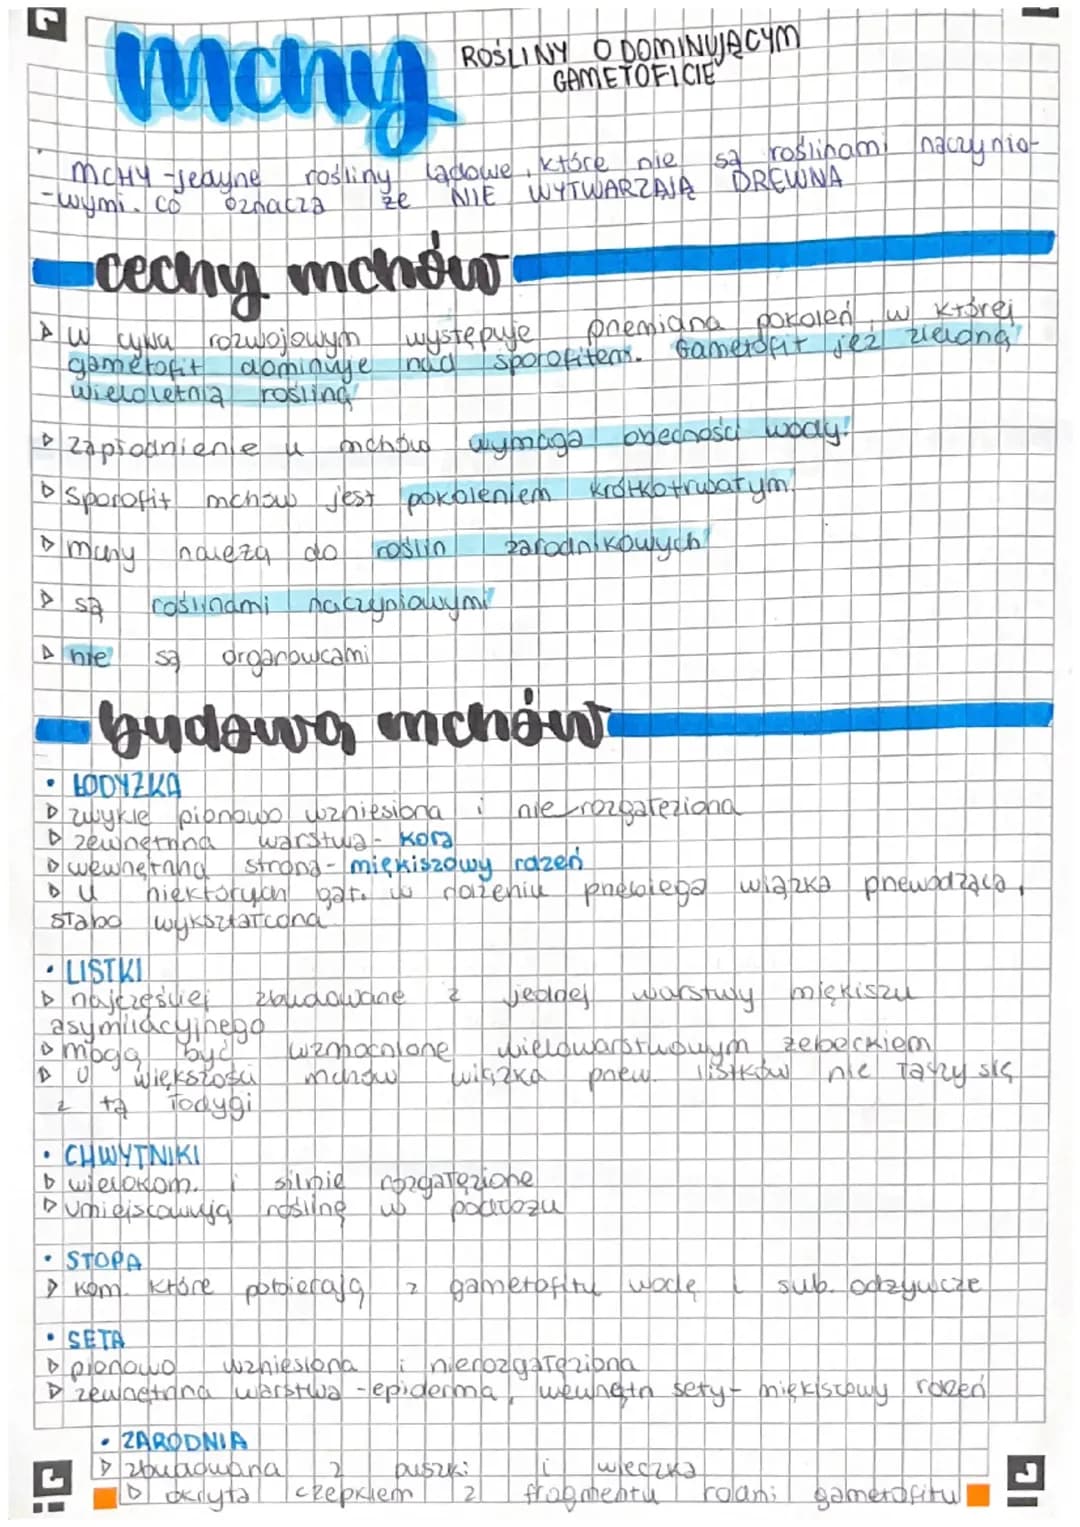 mchy
ROŚLINY O DOMINUJĄCYM
GAMETOFICIE
MCHY - jedyne rośliny lądowe, które nie są roślinami naczynio-
-wymi. co oznacza że NIE WYTWARZAJĄ DREWNA
cechy mchów
▷ W cyklu rozwojowym występuje przemiana pokoleń, w której
gametofit dominuje nad sporofitem. Gametofit jest zieloną
wieloletnią rośliną
▷ Zapłodnienie u mchów wymaga obecności wody!
▷ Sporofit mchów jest pokoleniem krótkotrwałym!
▷ mchy należą do roślin zarodnikowych!
▷ są roślinami naczyniowymi
▷ nie są organowcami
budowa mchów
• ŁODYŻKA
▷ zwykle pionowo wzniesiona i nierozgałęziona
▷ zewnętrzna warstwa - kora
▷ wewnętrzna strona - miękiszowy rdzeń
▷ U niektórych gat. w rdzeniu przebiega wiązka przewodząca,
słabo wykształcona
• LISTKI
▷ najczęściej zbudowane z jednej warstwy miękiszu
asymilacyjnego
▷ mogą być wzmocnione wielowarstwowym żeberkiem
▷ U większości mchów wiązka przew. listków nie łączy się
z tą łodygi
• CHWYTNIKI
▷ wielokom. i silnie rozgałęzione
▷ umiejscawiają roślinę w podłożu
• STOPA
▷ kom. które pobierają z gametofitu wodę i sub. odżywcze
• SETA
▷ pionowo wzniesiona i nierozgałęziona
▷ zewnętrzna warstwa - epiderma, wewnętrz sety - miękiszowy rdzeń
• ZARODNIA
▷ zbudowana z puszki i wieczka
▷ okryta czepkiem z fragmentu rodni gametofitu